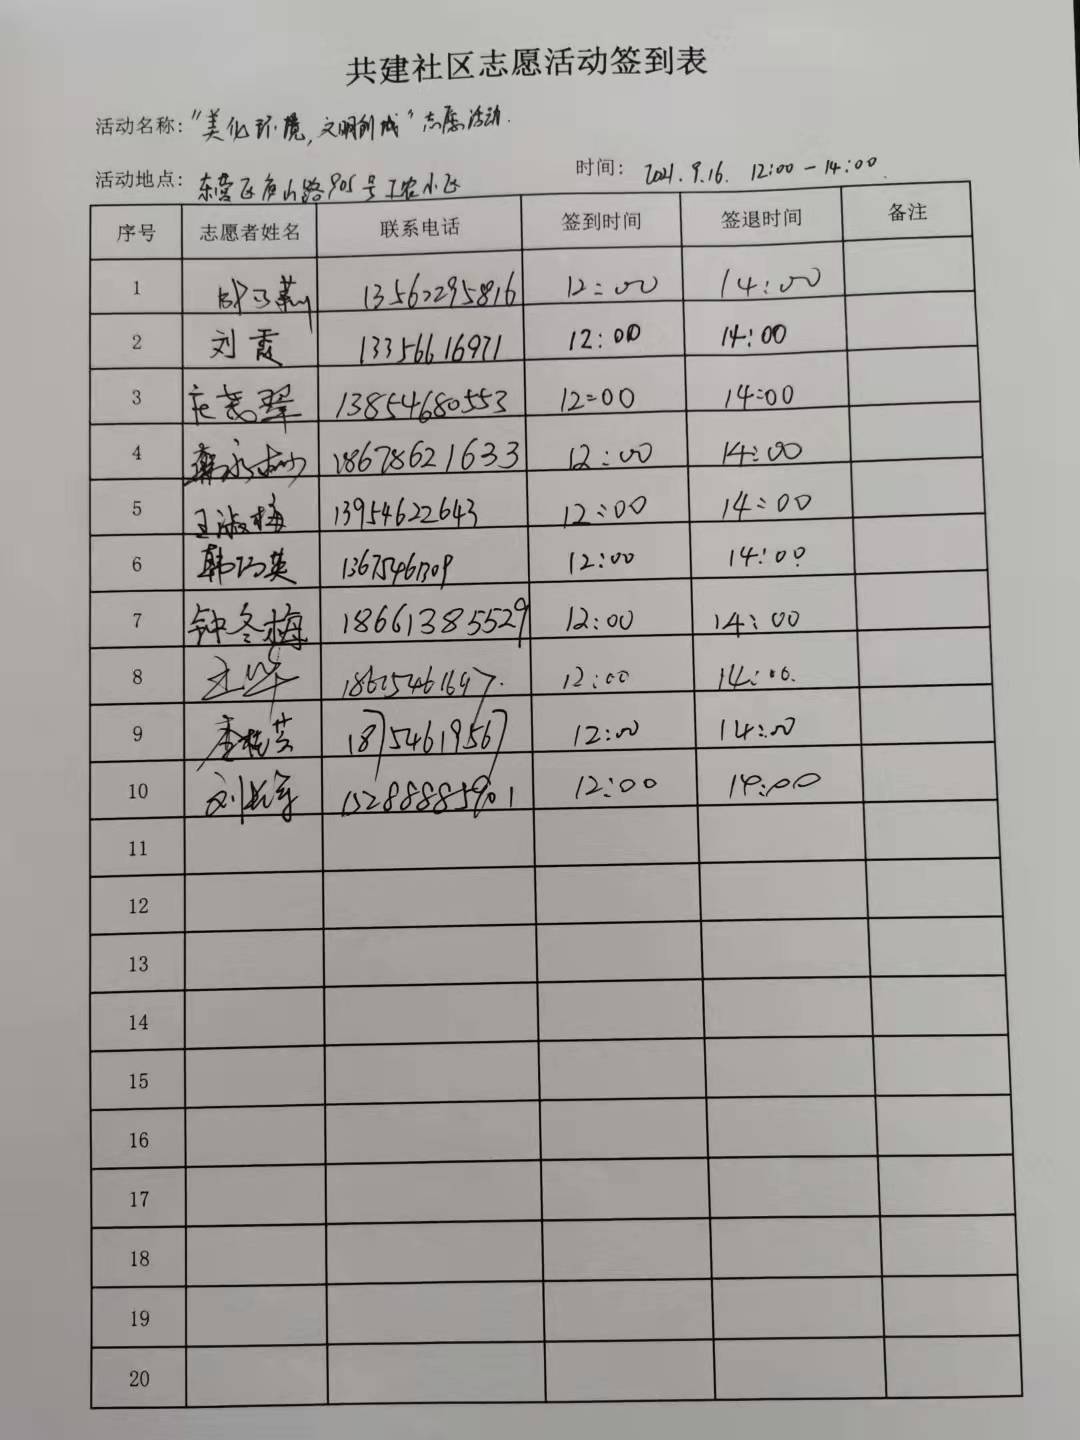 共建社区志愿活动签到表
活动名称："美化环境，文明创城"志愿活动.
活动地点：东营区庐山路905号工农小区 时间：2021.9.16. 12:00-14:00.
序号 志愿者姓名 联系电话 签到时间 签退时间 备注
1 13562295816 12:00 14:00
2 刘霞 13356616971 12:00 14:00
3 13854680553 12:00 14:00
4 18678621633 12:00 14:00
5 王淑梅 13954622643 12:00 14:00
6 韩巧英 12:00 14:00
7 钟冬梅 18661385529 12:00 14:00
8 12:00 14:00.
9 18754619567 12:00 14:00
10 15288885901 12:00 14:00
11
12
13
14
15
16
17
18
19
20